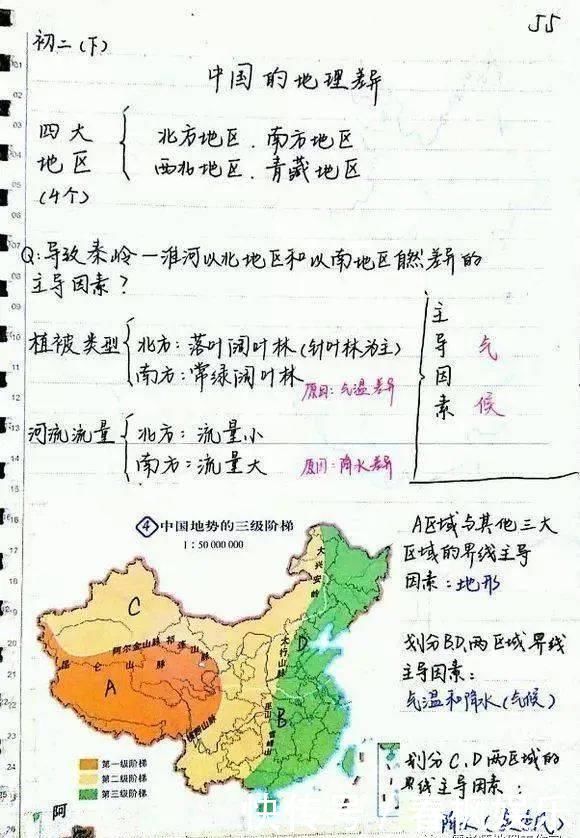 55
初二(下)
中国的地理差异
四大
地区
(4个)
北方地区、南方地区
西北地区、青藏地区
Q:导致秦岭一淮河以北地区和以南地区自然差异的
主导因素?
植被类型
北方:落叶阔叶林(针叶林为主)
南方:常绿阔叶林
原因:气温差异
主导因素
气候
河流流量
北方:流量小
南方:流量大
原因:降水差异
④中国地势的三级阶梯
1:50 000 000
大兴安岭
太行山脉
巫山
雪峰山
阿尔金山脉
祁连山脉
昆仑山脉
横断山脉
A
B
C
D
第一级阶梯
第二级阶梯
第三级阶梯
阿
A区域与其他三大
区域的界线主导
因素:地形
划分BD两区域界线
主导因素:
气温和降水(气候)
划分C、D两区域的
界线主导因素: